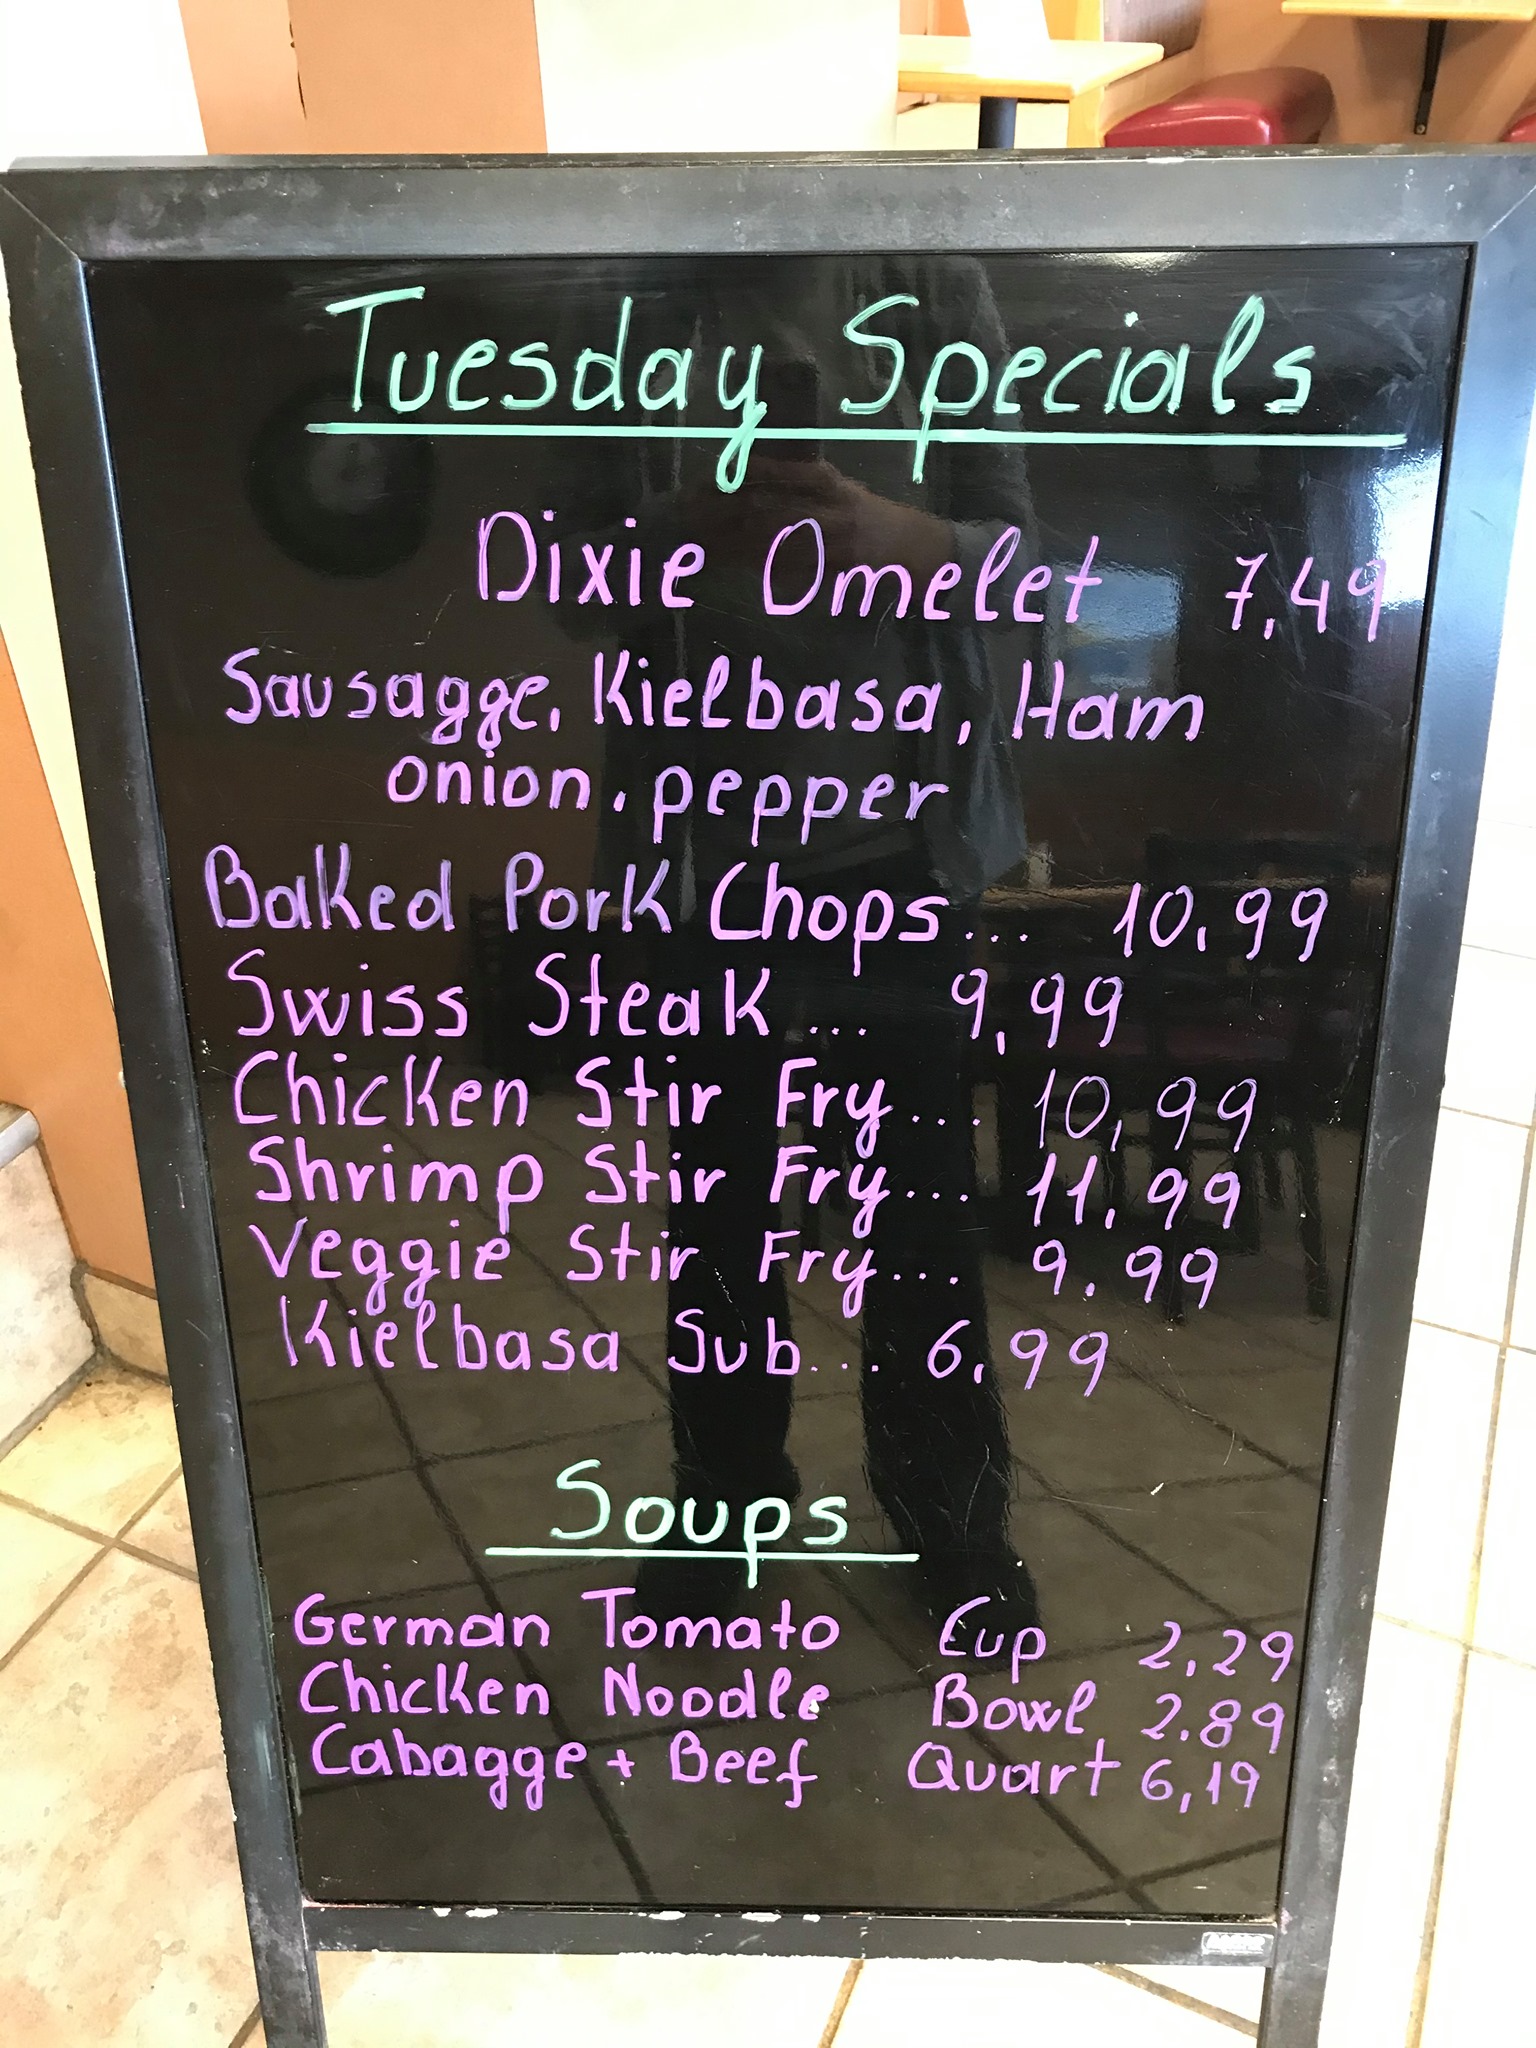 Tuesday Specials
Dixie Omelet 7,49
Sausagge, Kielbasa, Ham
onion. pepper
Baked Pork Chops... 10,99
Swiss Steak... 9,99
Chicken Stir Fry... 10,99
Shrimp Stir Fry... 11,99
Veggie Stir Fry... 9.99
Kielbasa Sub... 6,99
Soups
German Tomato Cup 2,29
Chicken Noodle Bowl 2.89
Cabagge + Beef Quart 6,19